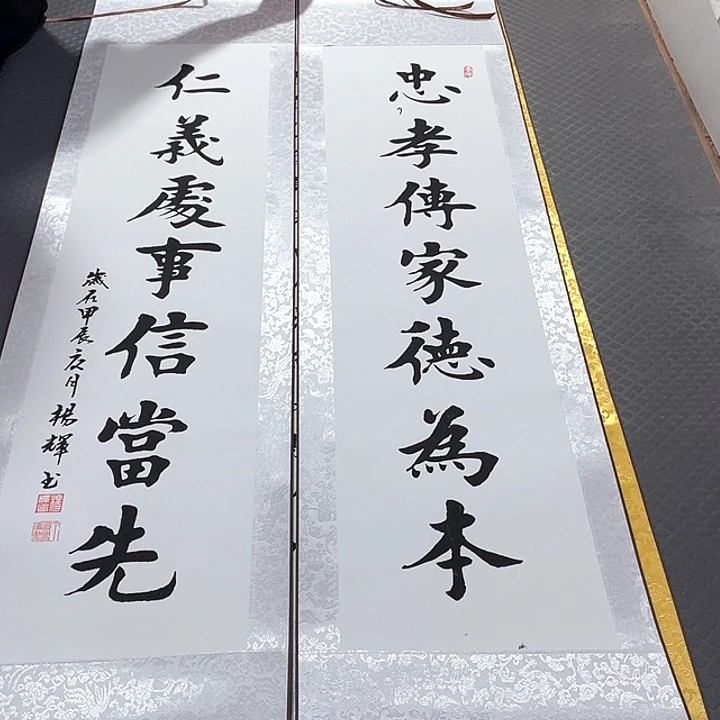 忠孝傳家德為本
仁義處事信當先
歲在甲辰夏月楊輝书